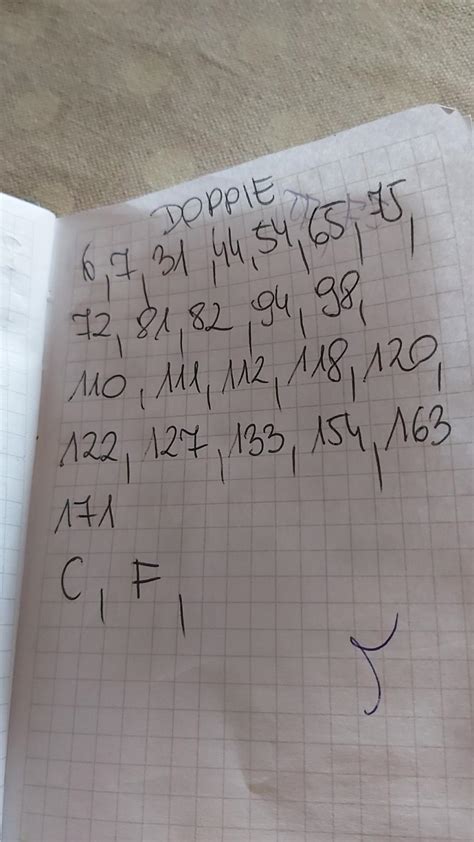 DOPPIE
6, 7, 31, 44, 54, 65, 75,
72, 81, 82, 94, 98,
110, 111, 112, 118, 120,
122, 127, 133, 154, 163
171
C, F,